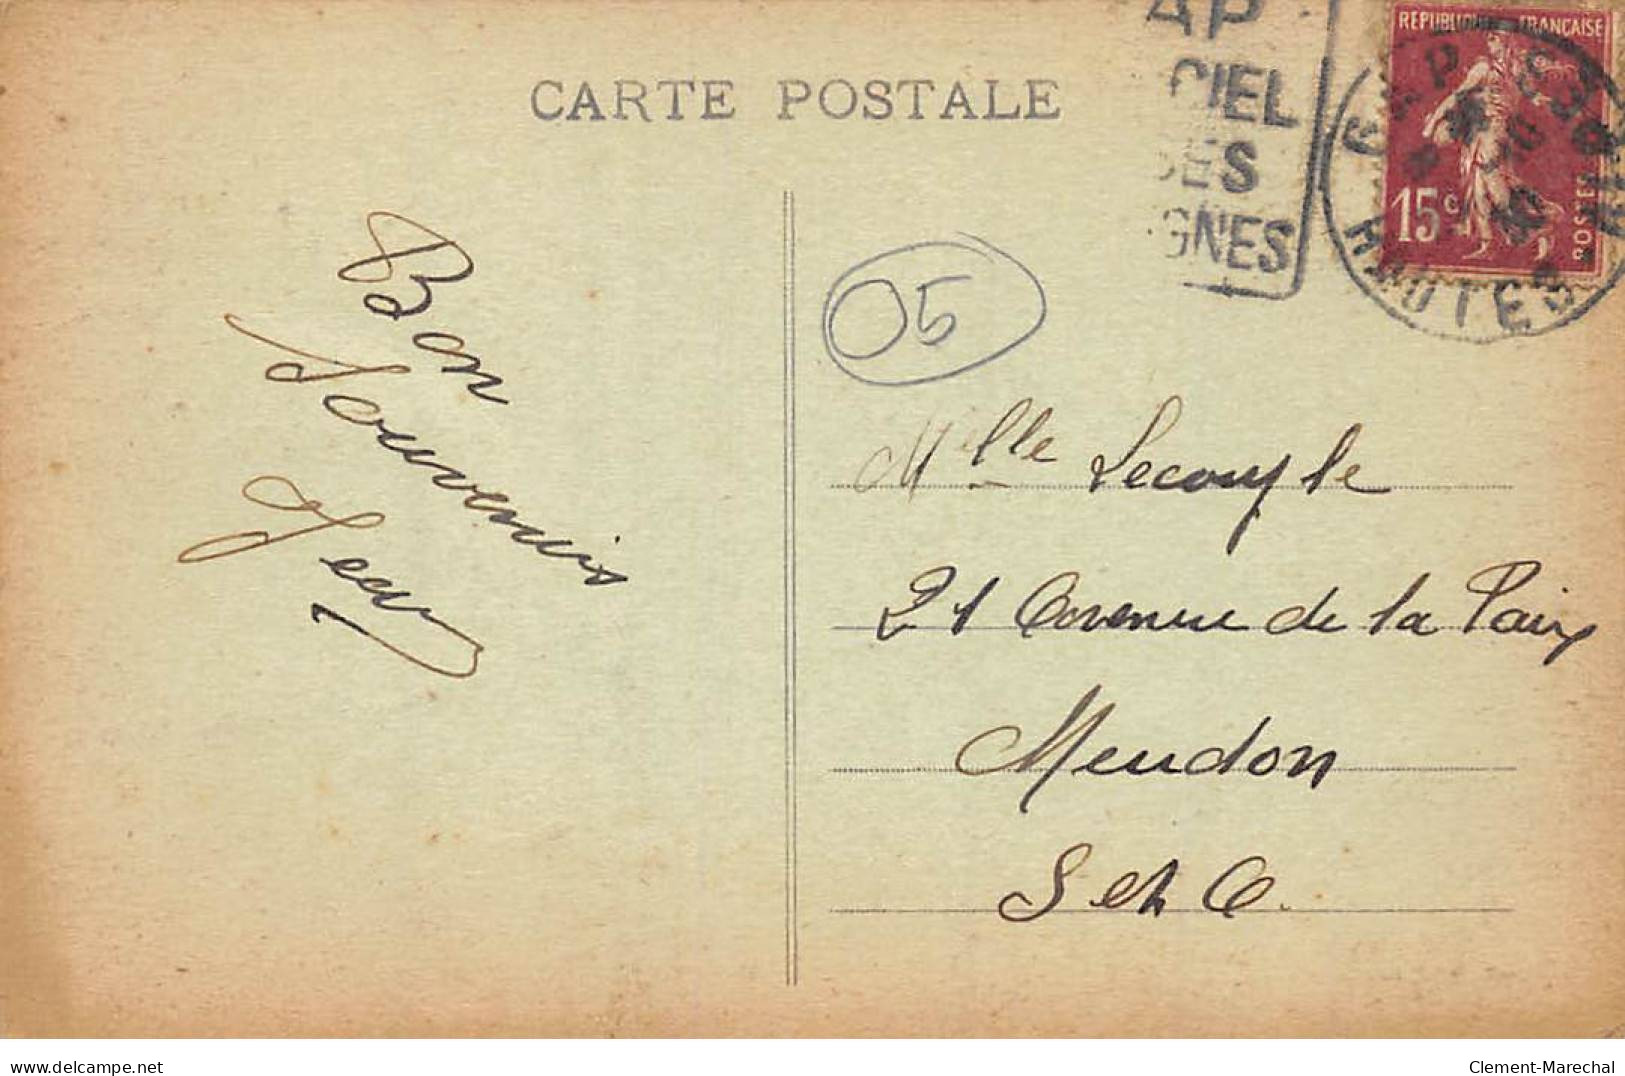 CARTE POSTALE
AP
CIEL
DES
GNES
REPUBLIQUE FRANÇAISE
15c
POSTES
GAP
HAUTES
05
Bon
Souvenir
Jean
Mlle Lecouple
21 Avenue de la Paix
Meudon
S et O
delcampe.net
Clement-Marechal